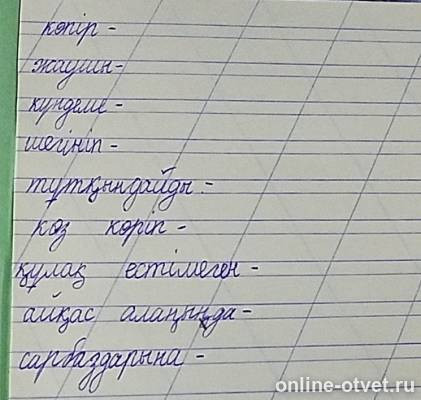 көпір -
жаушы -
күндеме -
шегініп -
тұтқындайды -
көз көріп -
құлақ естімеген -
айқас алаңында -
сарбаздарына -
online-otvet.ru